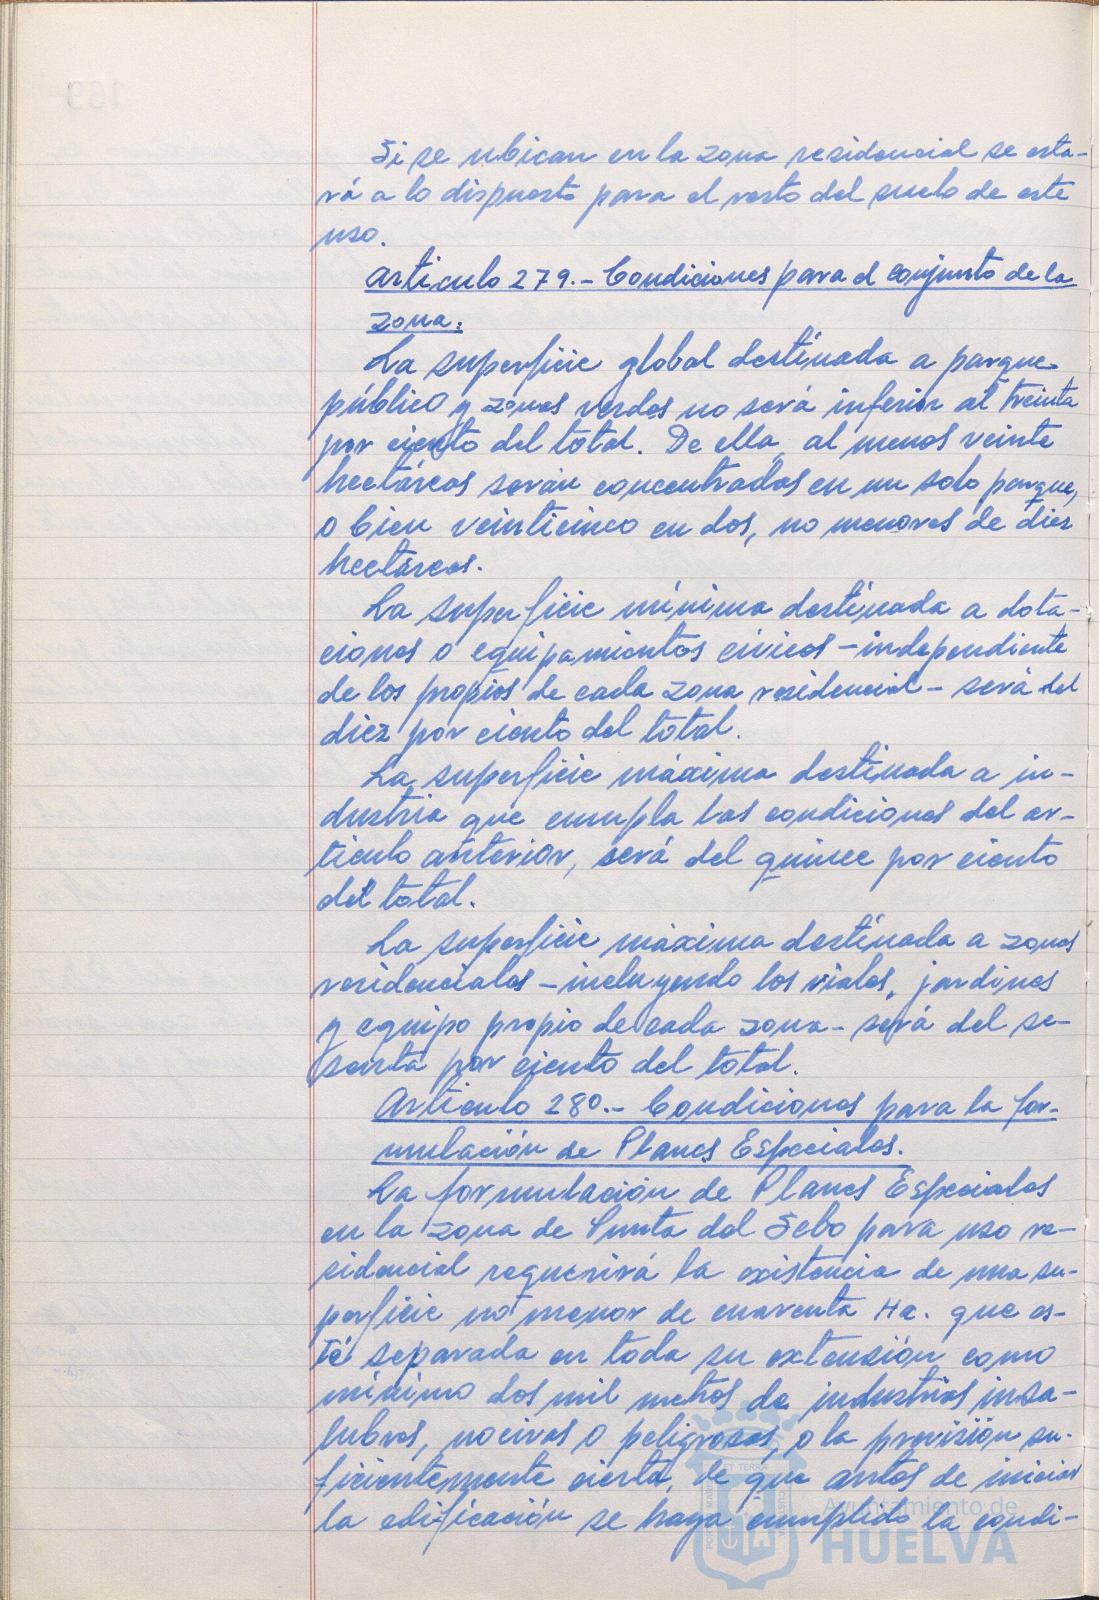 Si se ubican en la zona residencial se esta-
rá a lo dispuesto para el resto del suelo de este
uso.
Artículo 279.- Condiciones para el conjunto de la
zona:
La superficie global destinada a parque
público y zonas verdes no será inferior al treinta
por ciento del total. De ella, al menos veinte
hectáreas serán concentradas en un solo parque,
o bien veinticinco en dos, no menores de diez
hectáreas.
La superficie mínima destinada a dota-
ciones o equipamientos cívicos - independiente
de los propios de cada zona residencial - será del
diez por ciento del total.
La superficie máxima destinada a in-
dustria que cumpla las condiciones del ar-
tículo anterior, será del quince por ciento
del total.
La superficie máxima destinada a zonas
residenciales - incluyendo los viales, jardines
y equipo propio de cada zona - será del se-
senta por ciento del total.
Artículo 280.- Condiciones para la for-
mulación de Planes Especiales.
La formulación de Planes Especiales
en la zona de Punta del Sebo para uso re-
sidencial requerirá la existencia de una su-
perficie no menor de cuarenta Ha. que es-
té separada en toda su extensión como
mínimo dos mil metros de industrias insa-
lubres, nocivas o peligrosas, o la previsión su-
ficientemente cierta, de que antes de iniciar
la edificación se haya cumplido la condi-
Ayuntamiento de
HUELVA